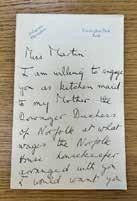 Miss Martin
I am willing to engage
you as kitchen maid
to my Mother the
Dowager Duchess
of Norfolk at what
wages the Norfolk
House housekeeper
arranged with you
I would want you